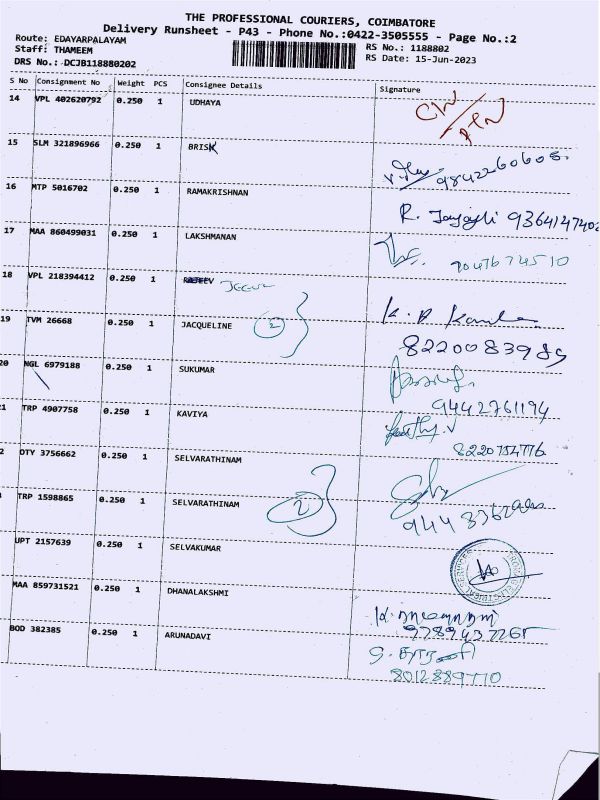 THE PROFESSIONAL COURIERS, COIMBATORE
Delivery Runsheet - P43 - Phone No.:0422-3505555 - Page No.:2
Route: EDAYARPALAYAM
Staff: THAMEEM
RS No.: 1188802
DRS No.: DCJB118880202
RS Date: 15-Jun-2023
S No Consignment No Weight PCS Consignee Details Signature
14 VPL 402620792 0.250 1 UDHAYA
15 SLM 321896966 0.250 1 BRISK 9842260605
16 MTP 5016702 0.250 1 RAMAKRISHNAN R. 9364147402
17 MAA 860499031 0.250 1 LAKSHMANAN
18 VPL 218394412 0.250 1
19 TVM 26668 0.250 1 JACQUELINE 2
8220083989
20 NGL 6979188 0.250 1 SUKUMAR
9442761194
1 TRP 4907758 0.250 1 KAVIYA
2 OTY 3756662 0.250 1 SELVARATHINAM
TRP 1598865 0.250 1 SELVARATHINAM 2
UPT 2157639 0.250 1 SELVAKUMAR
MAA 859731521 0.250 1 DHANALAKSHMI
9789437265
BOD 382385 0.250 1 ARUNADAVI
8012889770